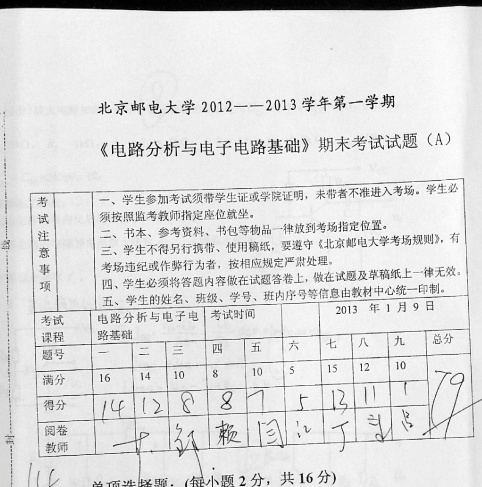 北京邮电大学 2012——2013 学年第一学期
《电路分析与电子电路基础》期末考试试题（A）
考试注意事项
一、学生参加考试须带学生证或学院证明，未带者不准进入考场。学生必
须按照监考教师指定座位就坐。
二、书本、参考资料、书包等物品一律放到考场指定位置。
三、学生不得另行携带、使用稿纸，要遵守《北京邮电大学考场规则》，有
考场违纪或作弊行为者，按相应规定严肃处理。
四、学生必须将答题内容做在试题答卷上，做在试题及草稿纸上一律无效。
五、学生的姓名、班级、学号、班内序号等信息由教材中心统一印制。
考试课程 电路分析与电子电路基础 考试时间 2013 年 1 月 9 日
题号 一 二 三 四 五 六 七 八 九 总分
满分 16 14 10 8 10 5 15 12 10
得分 14 12 8 8 7 5 13 11 1 79
阅卷教师
单项选择题：(每小题 2 分，共 16 分)